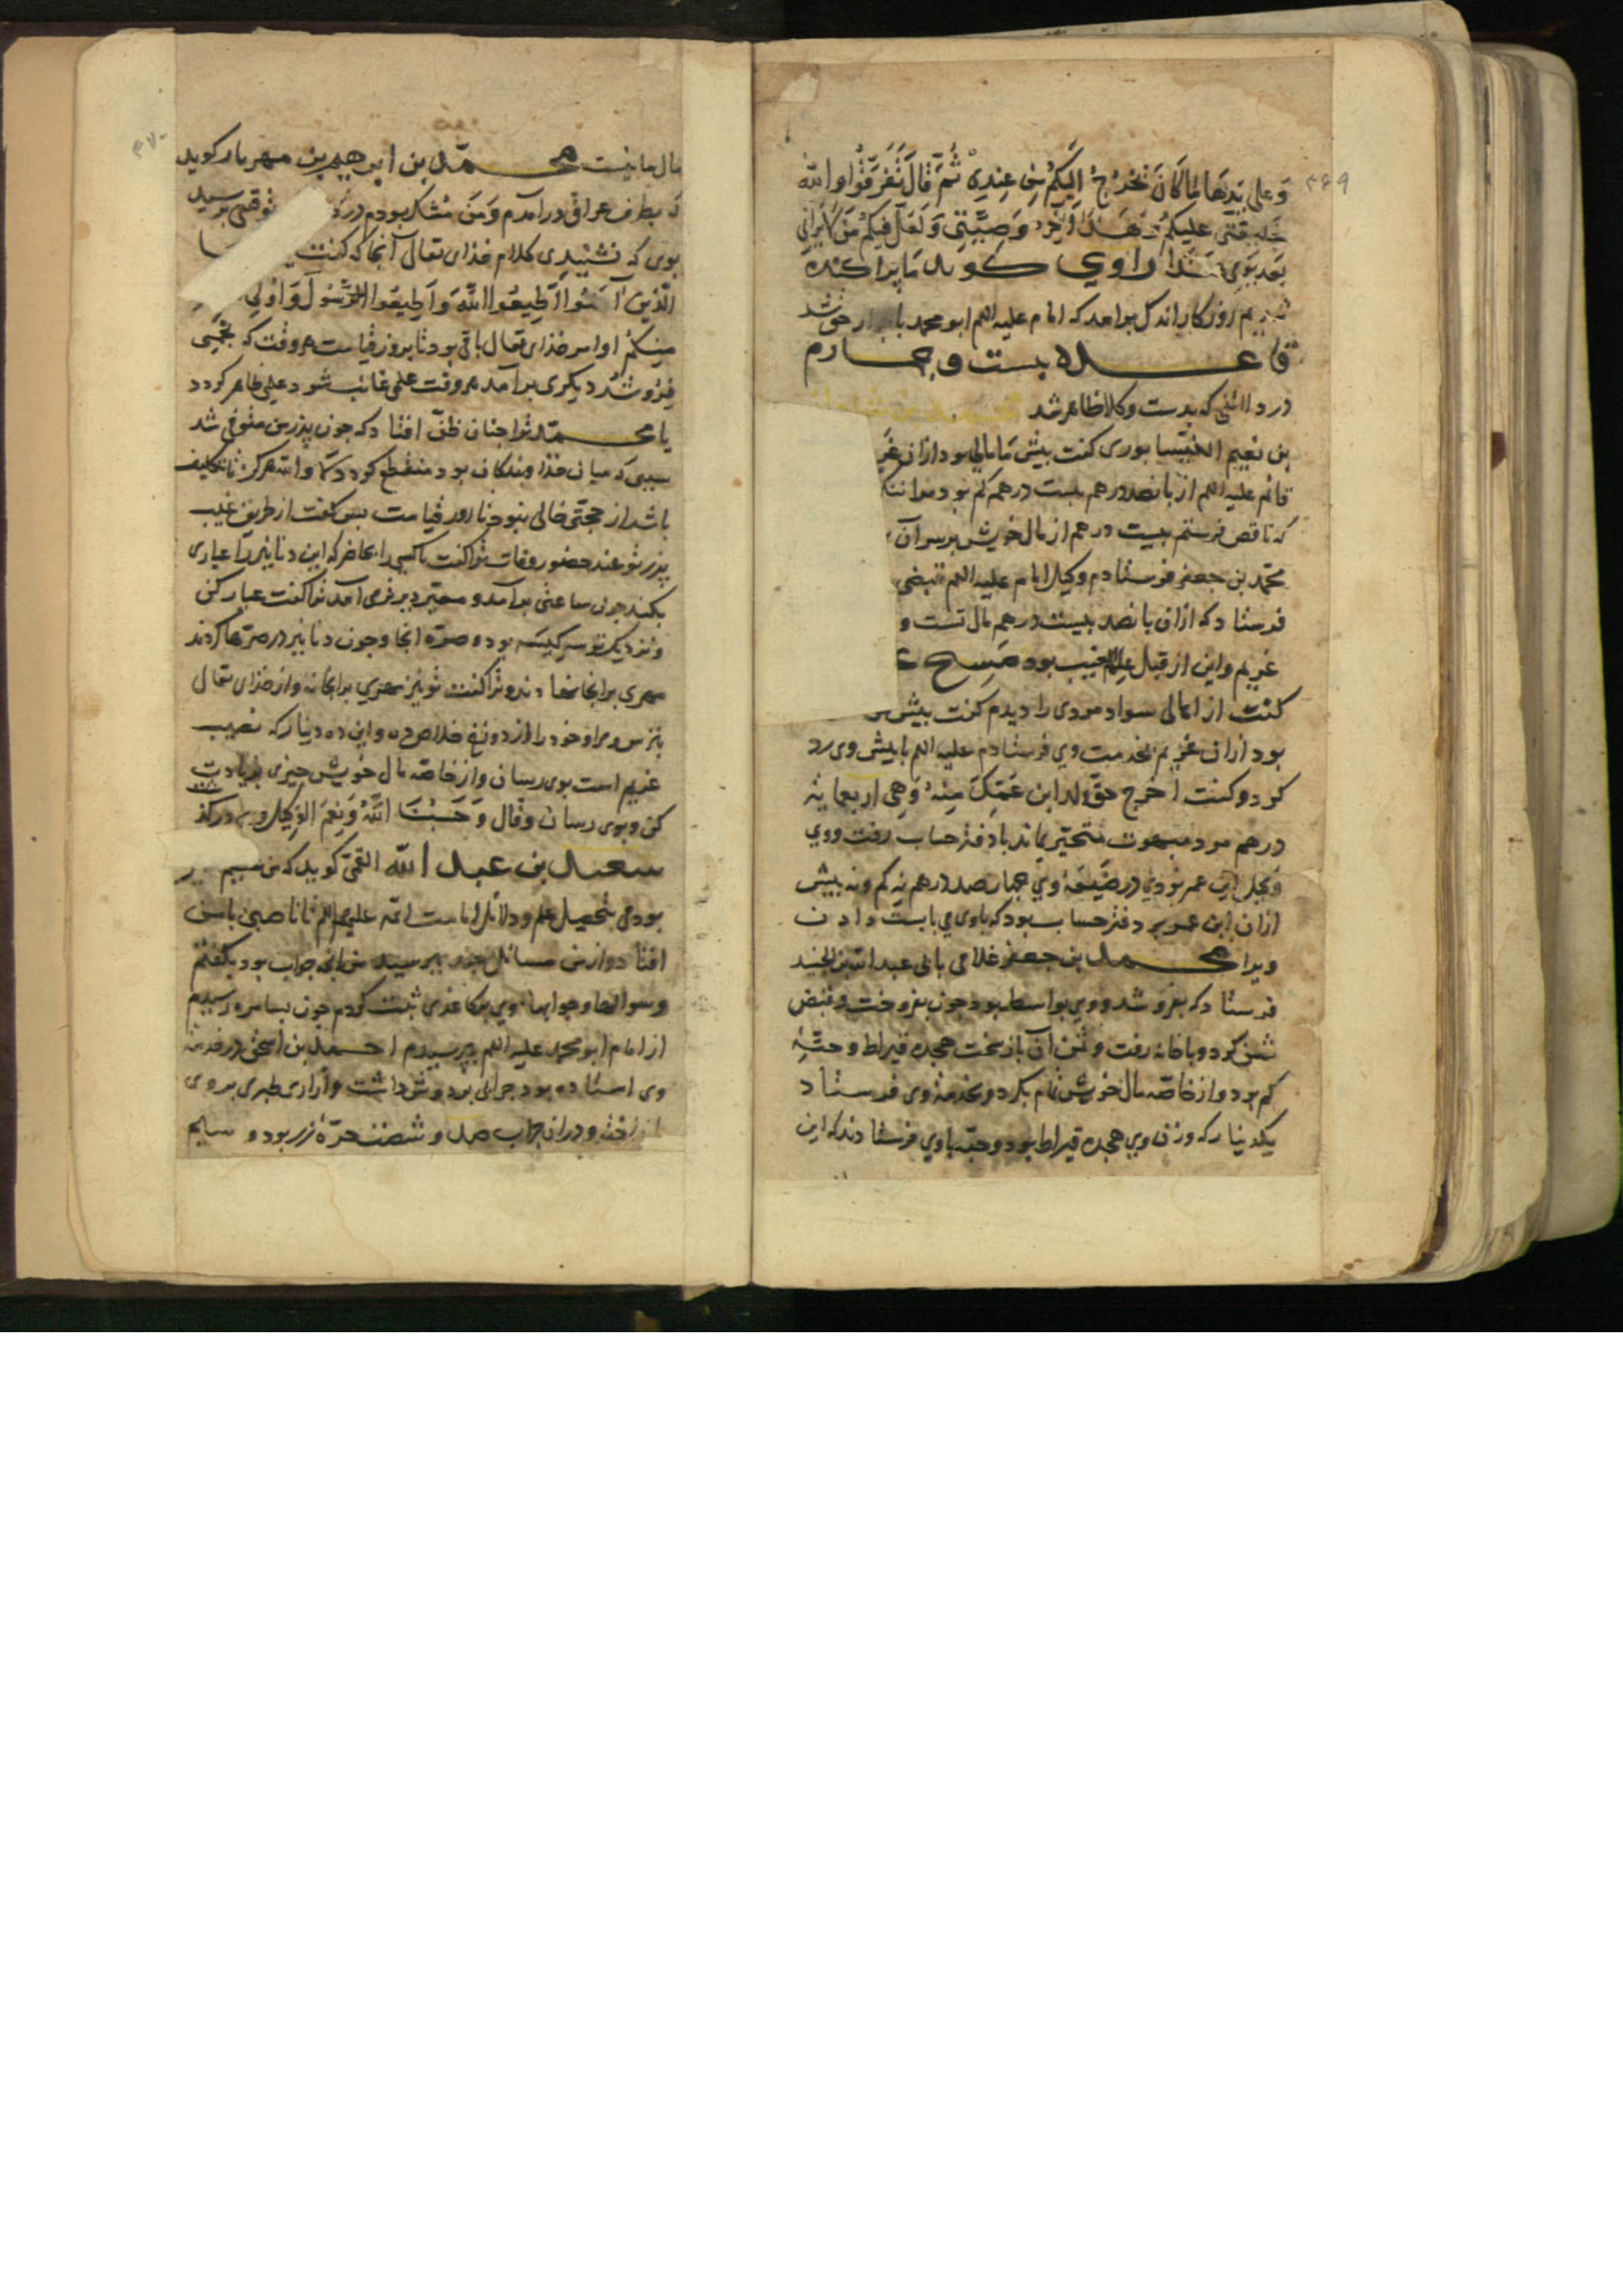 ۳۶۹
وَعلی یَدیها لما کانَ یَخرُجُ اِلَیکُم مِن عِندِیْ ثُمَّ قَالَ تَفَرَّقُوا وَاللّه
خَلیفَتی عَلیکُم وَهذا آخِرُ وَصِیَّتی وَلَعَلَّ فیکُم مَن لا یَرانی
بَعدَ یَومی هٰذا راوی کوید ما پراکنده
شدیم روزکار اندک برامد که امام علیه السلم ابو محمد با جوار حق شد
قاعده بیست و چهارم
در دلائلی که بدست وکلا ظاهر شد
بن نعیم النیسابوری کفت بیش ما مالی بود ازان غر
قائم علیه السلم از بانصد درهم بیست درهم کم بود
که ناقص فرستم بیست درهم از مال خویش برسر آن
محمد بن جعفر فرستادم وکیل امام علیه السلم قبضی
فرستاد که ازان بانصد بیست درهم مال تست و
غریم و این از قبل علم غیب بود
کفت از اهالی سواد مردی را دیدم کفت بیش
بود ازان غریم بخدمت وی فرستادم علیه السلم با بیش وی رد
کرد و کفت اخرج حقّ ولد ابن عَمِّکَ مِنهُ وَهِی اربعمایة
درهم مرد مبهوت متحیّر بماند با دفتر حساب رفت و وی
وکیل ابن عم بودی در ضَیعَةِ وی جهار صد درهم نه کم و نه بیش
ازان ابن عم بر دفتر حساب بود که باوی می بایست دادن
ویرا محمد بن جعفر غلامی بابی عبد الله بن الجنید
فرستاد که بفروشد و وی بواسط بود جون بفروخت و قبض
ثمن کرد و با خانه رفت و ثمن آن باز سخت هجده قیراط و حبّهٔ
کم بود و از خاصه مال خویش تمام بکرد و بخدمت وی فرستاد
یکدینار که وزن وی هجده قیراط بود و حبّه باوی فرستادند که این
۳۷۰
مال ما نیست محمّد بن ابرهیم بن مهریار کوید
که بطرف عراق درآمدم وَمن مُشکّک بودم در توقیعی برسید
بوی که نشنیدی کلام خدای تعالی آنجا که کفت یا
الّذینَ آمَنُوا اَطِیعُوا اللّهَ وَاَطِیعُوا الرَّسُولَ وَاُولِی
مِنکُمْ اوامر خدای تعالی باقی بود تا بروز قیامت هر وقت که نجمی
فرو شد دیکری برآمد هر وقت علمی غائب شود علمی ظاهر کردد
یا محمّد ترا جنان ظنّ افتاد که جون پدر من متوفی شد
سببی که میان خدا و بندکان بود منقطع کردد کلّا والله هرکز تا تکلیف
باشد از حجتی خالی نبود تا روز قیامت بس کفت از طریق غیب
پدر تو عند حضور وفات ترا کفت تا کسی را بحاضر که این دنانیر را عیاری
بکند جون ساعتی برآمد و معیّر دیر فرمی آمد ترا کفت عیار کن
و نزدیک تو سه کیسه بود و صرّه انجا و جون دنانیر در صرّها کردند
مهری بر انجا نهادند و ترا کفت تو نیز مهری بر انجا نه و از خدای تعالی
بترس و مرا و خود را از دوزخ خلاص ده و این ده دینار که نصیب
غریم است بوی رسان و از خاصّه مال خویش جیزی زیادت
کن و بوی رسان وَقال وَحَسبُنَا اللّهُ وَنِعمَ الوکِیل
سعد بن عبد الله القمّی کوید که من
بودمی بتحصیل علم و دلائل امامت ائمه علیهم السلم تا ناصبی با من
افتاد و از من مسائل جند ببرسید من انجه جواب بود بکفتم
و سوالها و جوابها وی بر کاغذی ثبت کردم جون بسامره رسیدم
از امام ابو محمد علیه السلم ببرسیدم احمد بن اسحق در خدمت
وی استاده بود جرابی بر دوش داشت و ازاری طبری بر وی
انداخته و دران جراب صد و شصت صرّه زر بود و سایم